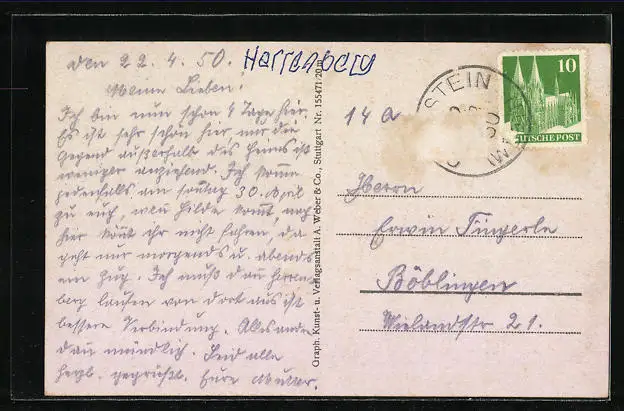 den 22.4.50. Herrenberg
Meine Lieben!
Ich bin nun schon 4 Tage hier.
Es ist sehr schön hier nur die
Gegend außerhalb des Heims ist
weniger anziehend. Ich komme
jedenfalls am Sonntag 30. April
zu euch, wenn Hilde kommt, nach
hier könnt ihr nicht fahren, da
geht nur morgends u. abends
ein Zug. Ich muß dann Herren-
berg laufen von dort aus ist
bessere Verbindung. Alles andere
dann mündlich. Seid alle
herzl. gegrüßt. Eure Mutter.
Graph. Kunst- u. Verlagsanstalt A. Weber & Co., Stuttgart Nr. 155471/20 m
14 a
STEIN
10
DEUTSCHE POST
Herrn
Erwin Fingerle
Böblingen
Wielandstr 21.